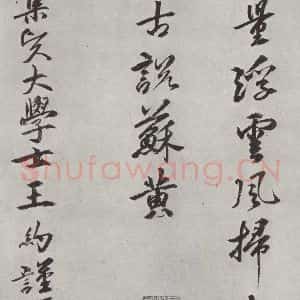 量浮雲風掃
古說蘇黃
集賢大學士王約謹
Shufawang.CN